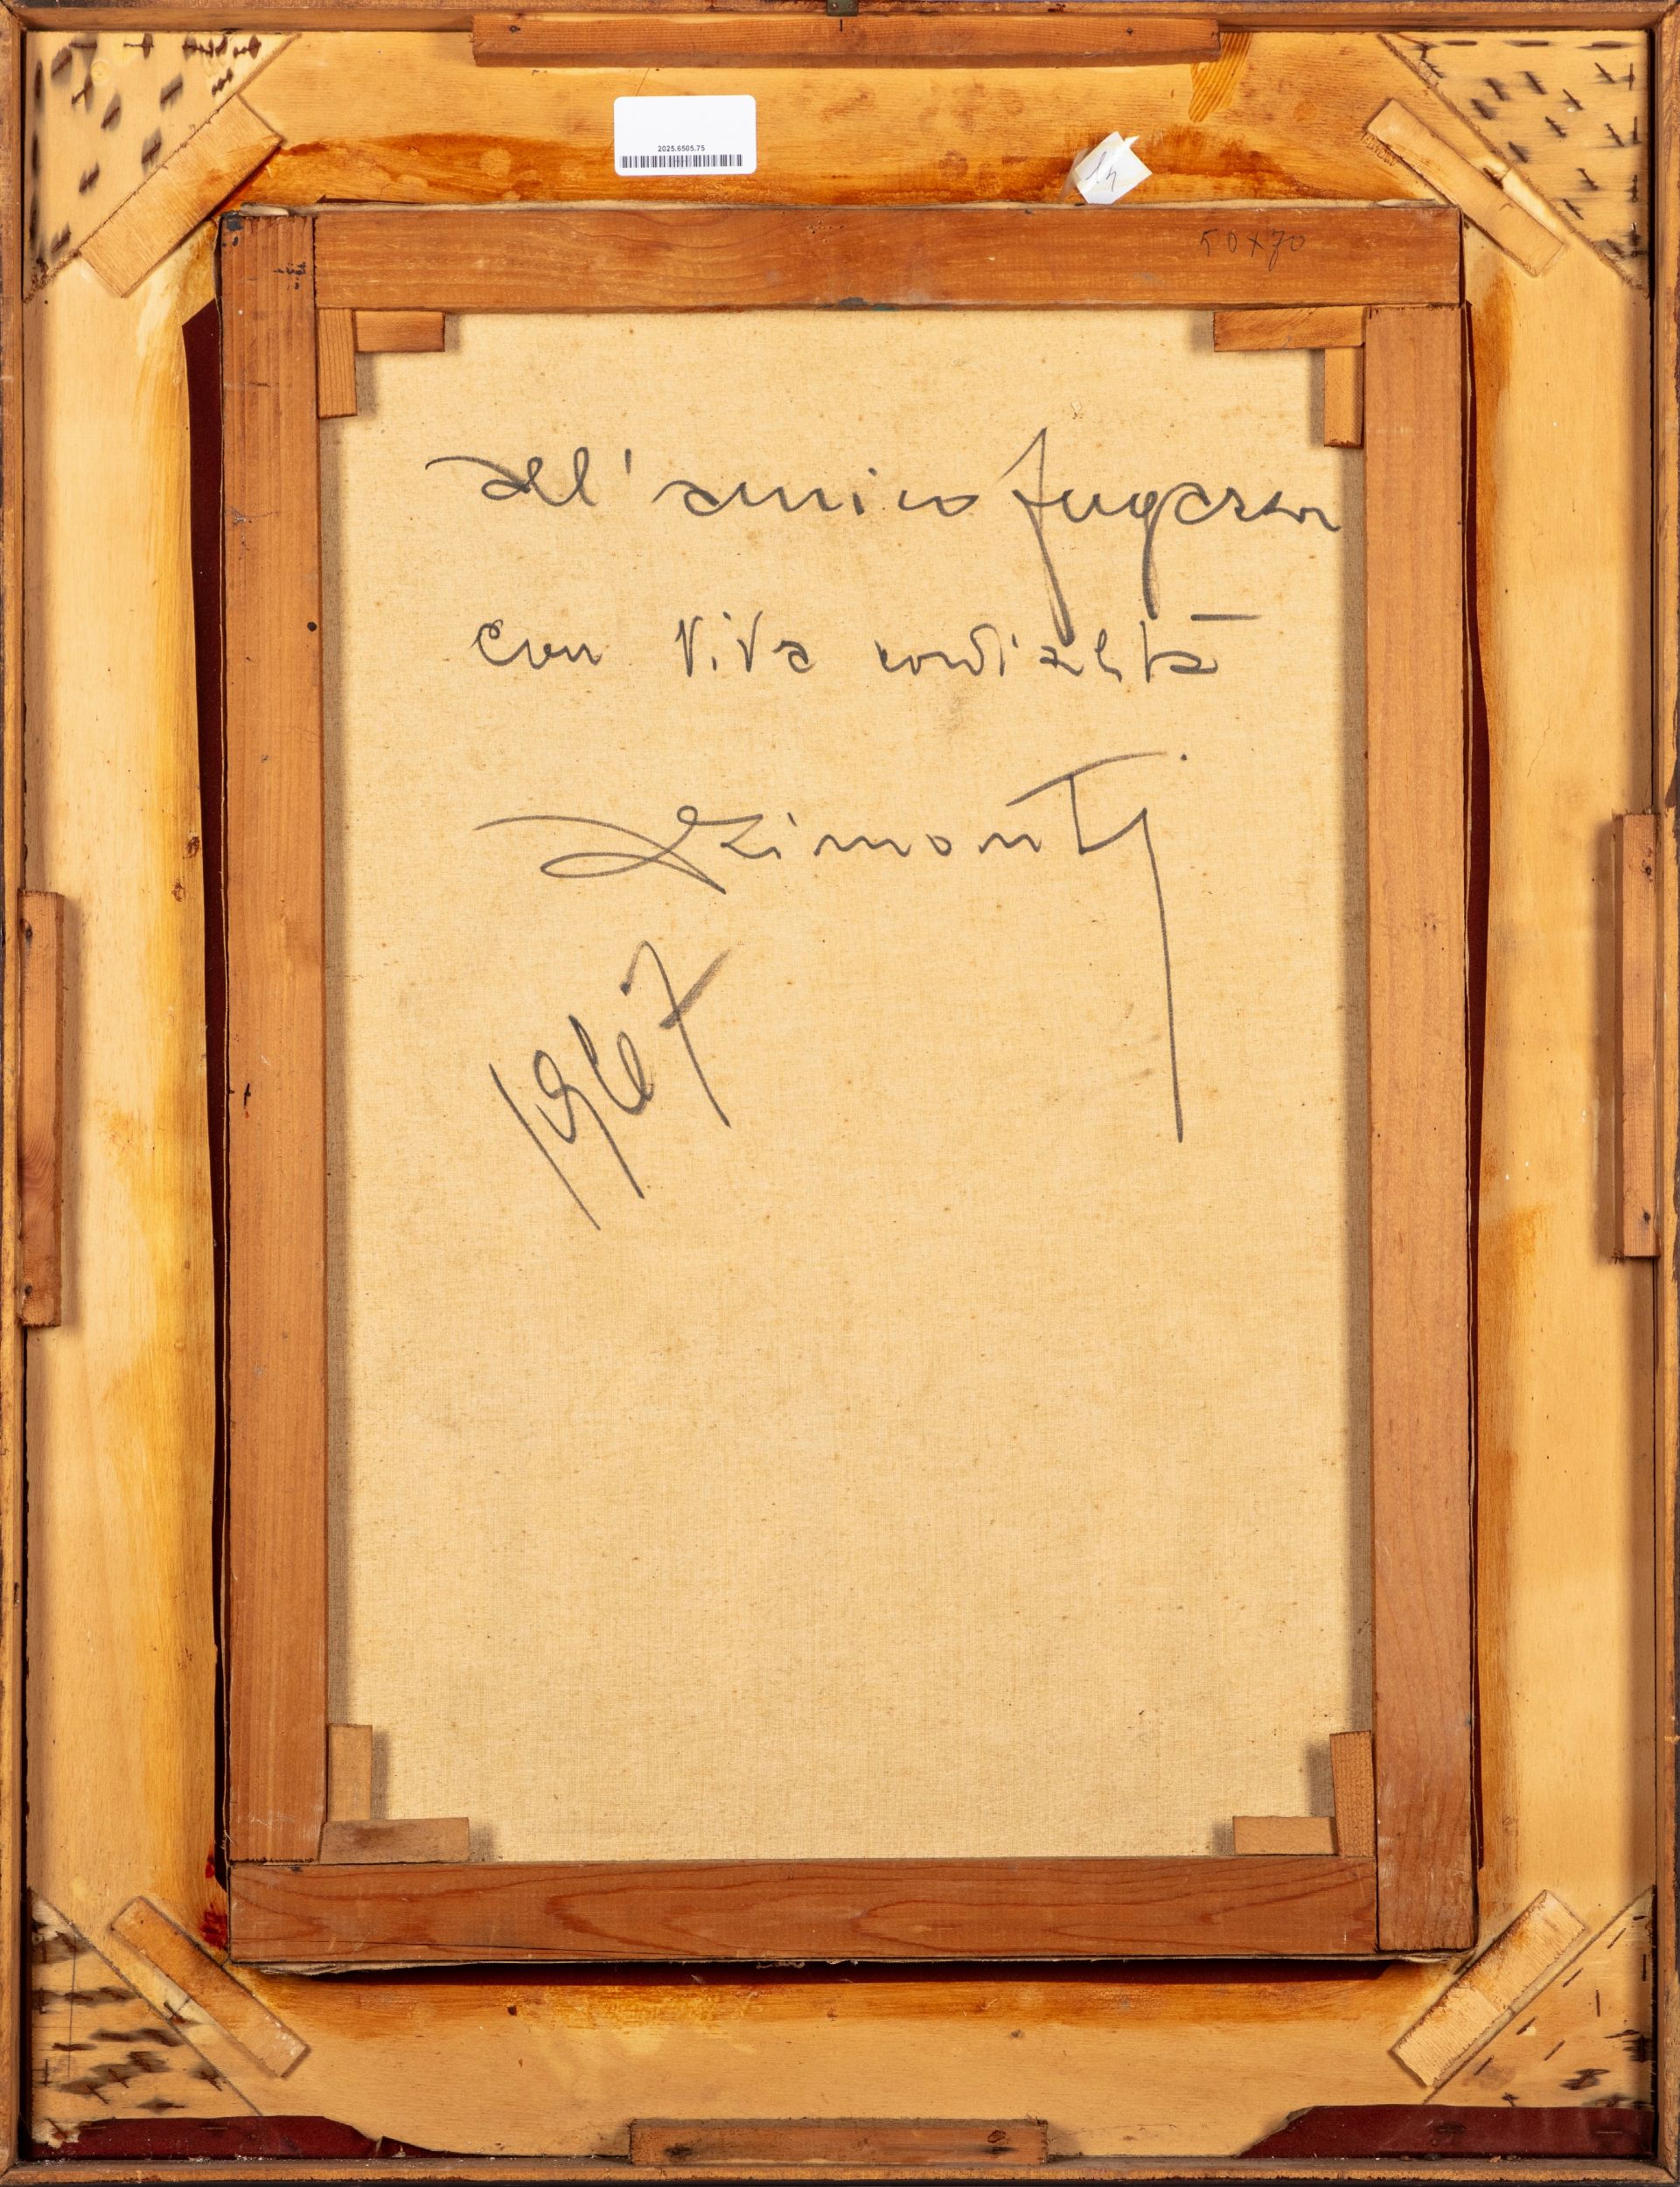 2025.6505.75
14
50x70
all'amico
con viva cordialità
1967